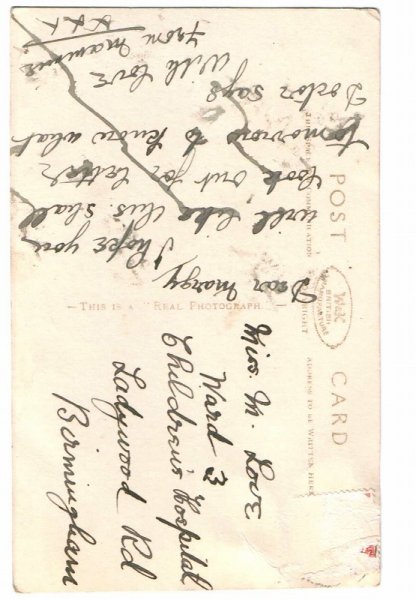 POST CARD
THIS IS A REAL PHOTOGRAPH
W&K
BRITISH
MANUFACTURE
ADDRESS TO BE WRITTEN HERE
Dear Margy
I hope you
will like this. shall
Look out for letter
tomorrow to know what
Doctor says
With Love
from Mammie
xxx
Miss. M. Love
Ward 3
Children's Hospital
Ladywood Rd
Birmingham